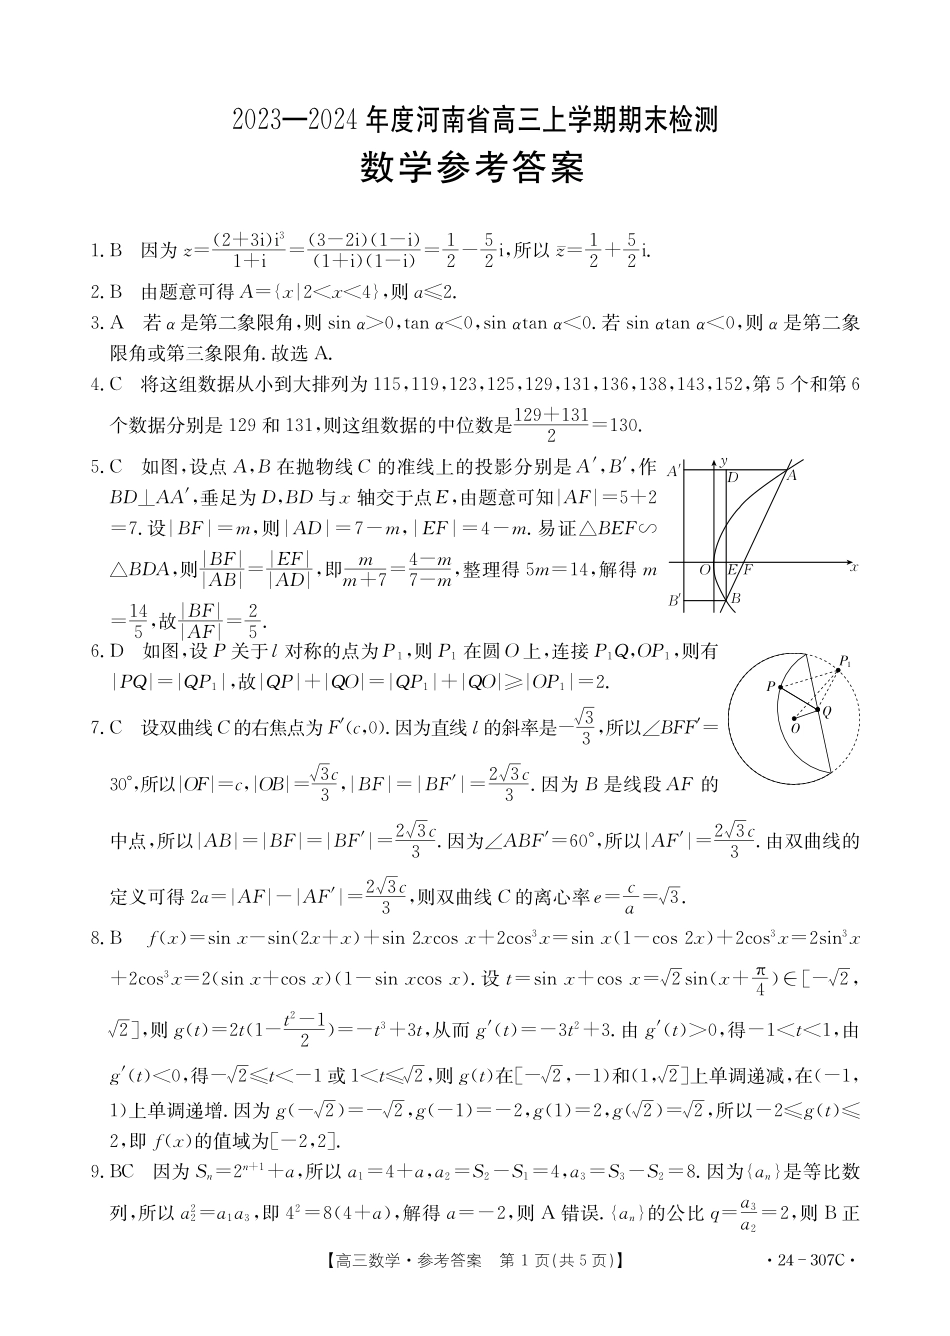 2023—2024 年度河南省高三上学期期末检测
数学参考答案
1. B 因为 z=\frac{(2+3i)i³}{1+i}=\frac{(3-2i)(1-i)}{(1+i)(1-i)}=\frac{1}{2}-\frac{5}{2}i,所以 \bar{z}=\frac{1}{2}+\frac{5}{2}i.
2. B 由题意可得 A={x|2<x<4},则 a≤2.
3. A 若 α 是第二象限角,则 sin α>0,tan α<0,sin αtan α<0. 若 sin αtan α<0,则 α 是第二象
限角或第三象限角. 故选 A.
4. C 将这组数据从小到大排列为 115,119,123,125,129,131,136,138,143,152,第 5 个和第 6
个数据分别是 129 和 131,则这组数据的中位数是\frac{129+131}{2}=130.
5. C 如图,设点 A,B 在抛物线 C 的准线上的投影分别是 A′,B′,作
BD⊥AA′,垂足为 D,BD 与 x 轴交于点 E,由题意可知|AF|=5+2
=7. 设|BF|=m,则|AD|=7-m,|EF|=4-m. 易证△BEF∽
△BDA,则\frac{|BF|}{|AB|}=\frac{|EF|}{|AD|},即\frac{m}{m+7}=\frac{4-m}{7-m},整理得 5m=14,解得 m
=\frac{14}{5},故\frac{|BF|}{|AF|}=\frac{2}{5}.
A′ y D A
O E F x
B′ B
6. D 如图,设 P 关于 l 对称的点为 P₁,则 P₁ 在圆 O 上,连接 P₁Q,OP₁,则有
|PQ|=|QP₁|,故|QP|+|QO|=|QP₁|+|QO|≥|OP₁|=2.
P₁
P
Q
O
7. C 设双曲线 C 的右焦点为 F′(c,0). 因为直线 l 的斜率是-\frac{√3}{3},所以∠BFF′=
30°,所以|OF|=c,|OB|=\frac{√3c}{3},|BF|=|BF′|=\frac{2√3c}{3}. 因为 B 是线段 AF 的
中点,所以|AB|=|BF|=|BF′|=\frac{2√3c}{3}. 因为∠ABF′=60°,所以|AF′|=\frac{2√3c}{3}. 由双曲线的
定义可得 2a=|AF|-|AF′|=\frac{2√3c}{3},则双曲线 C 的离心率 e=\frac{c}{a}=√3.
8. B f(x)=sin x-sin(2x+x)+sin 2xcos x+2cos³x=sin x(1-cos 2x)+2cos³x=2sin³x
+2cos³x=2(sin x+cos x)(1-sin xcos x). 设 t=sin x+cos x=√2sin(x+\frac{π}{4})∈[-√2,
√2],则 g(t)=2t(1-\frac{t²-1}{2})=-t³+3t,从而 g′(t)=-3t²+3. 由 g′(t)>0,得-1<t<1,由
g′(t)<0,得-√2≤t<-1 或 1<t≤√2,则 g(t)在[-√2,-1)和(1,√2]上单调递减,在(-1,
1)上单调递增. 因为 g(-√2)=-√2,g(-1)=-2,g(1)=2,g(√2)=√2,所以-2≤g(t)≤
2,即 f(x)的值域为[-2,2].
9. BC 因为 Sₙ=2ⁿ⁺¹+a,所以 a₁=4+a,a₂=S₂-S₁=4,a₃=S₃-S₂=8. 因为{aₙ}是等比数
列,所以 a₂²=a₁a₃,即 4²=8(4+a),解得 a=-2,则 A 错误. {aₙ}的公比 q=\frac{a₃}{a₂}=2,则 B 正
【高三数学·参考答案 第 1 页(共 5 页)】 ·24-307C·